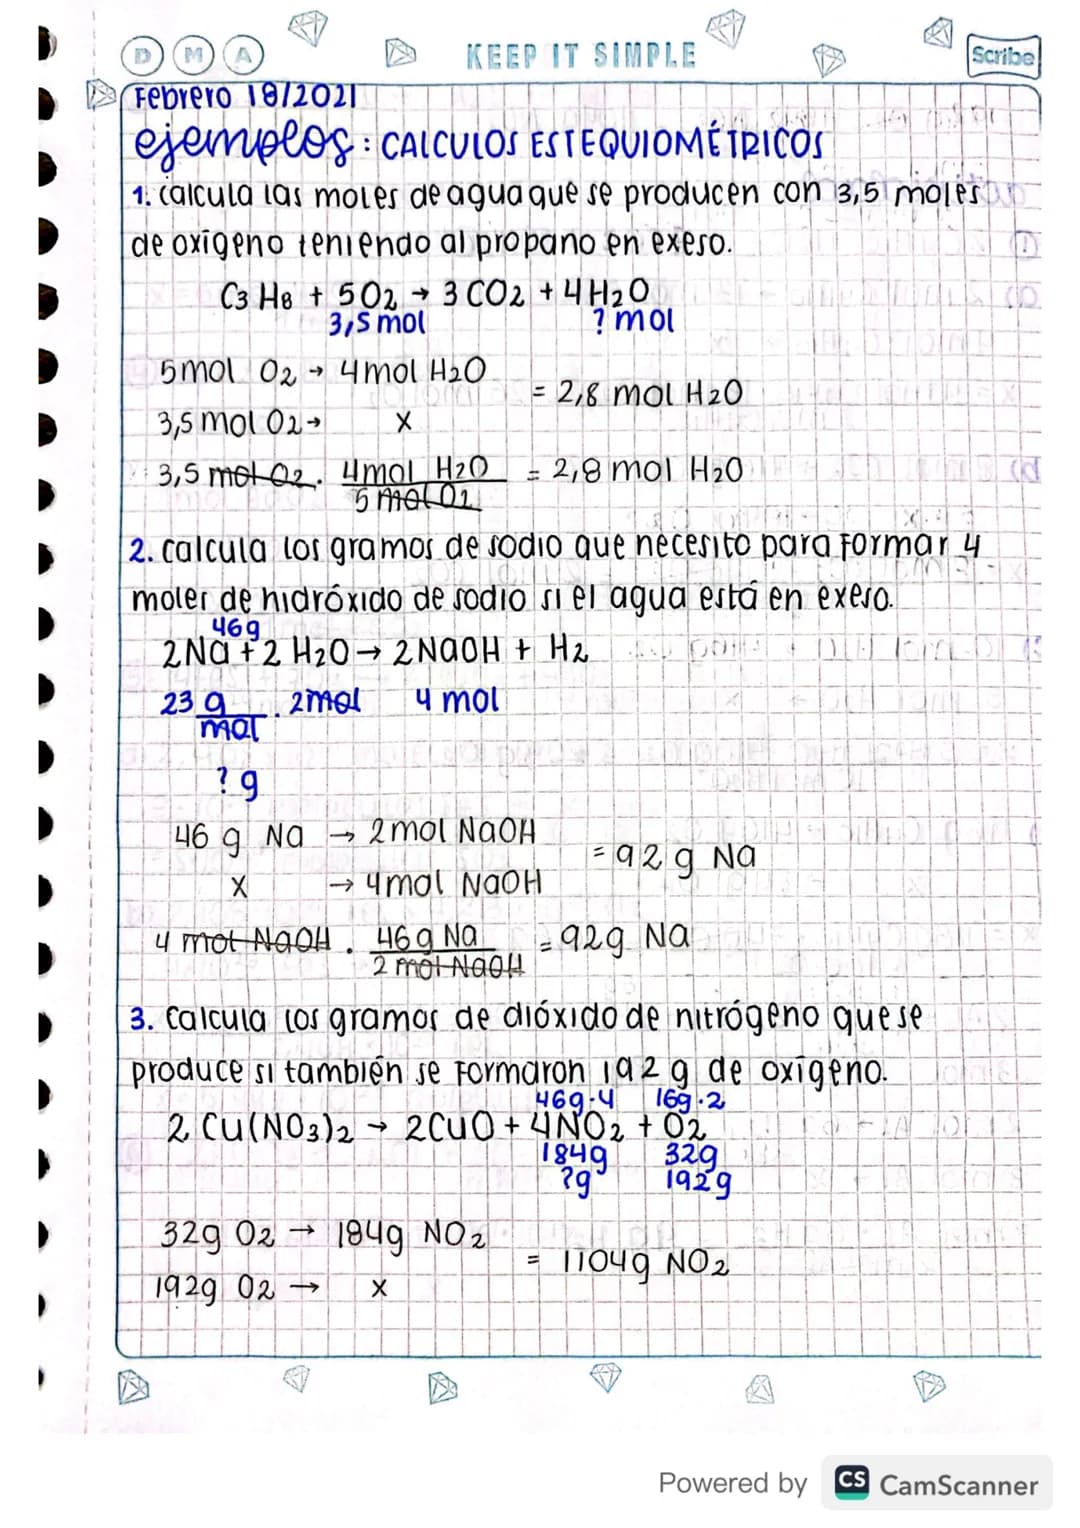 D M A KEEP IT SIMPLE Scribe
Febrero 18/2021
ejemplos: CALCULOS ESTEQUIOMÉTRICOS
1. calcula las moles de agua que se producen con 3,5 moles
de oxígeno teniendo al propano en exeso.
C3 H8 + 5O2 → 3 CO2 + 4 H2O
3,5 mol ? mol
5mol O2 → 4mol H2O
= 2,8 mol H2O
3,5 mol O2 → X
3,5 mol O2 . 4mol H2O = 2,8 mol H2O
5 mol O2
2. calcula los gramos de sodio que necesito para formar 4
moles de hidróxido de sodio si el agua está en exeso.
46g
2Na + 2 H2O → 2NaOH + H2
23 g . 2mol 4 mol
mol
? g
46 g Na → 2mol NaOH
= 92 g Na
X → 4mol NaOH
4 mol NaOH . 46g Na = 92g Na
2 mol NaOH
3. Calcula los gramos de dióxido de nitrógeno que se
produce si también se formaron 192 g de oxígeno.
46g.4 16g.2
2 Cu(NO3)2 → 2CuO + 4NO2 + O2
184g 32g
?g 192g
32g O2 → 184g NO2
= 1104g NO2
192g O2 → X
Powered by CS CamScanner